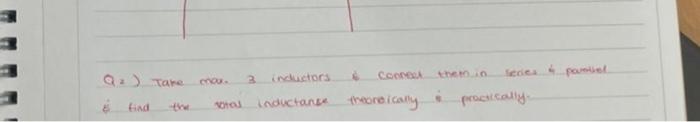 Q2) Take max. 3 inductors & connect them in series & parallel
& find the total inductance theoretically & practically.